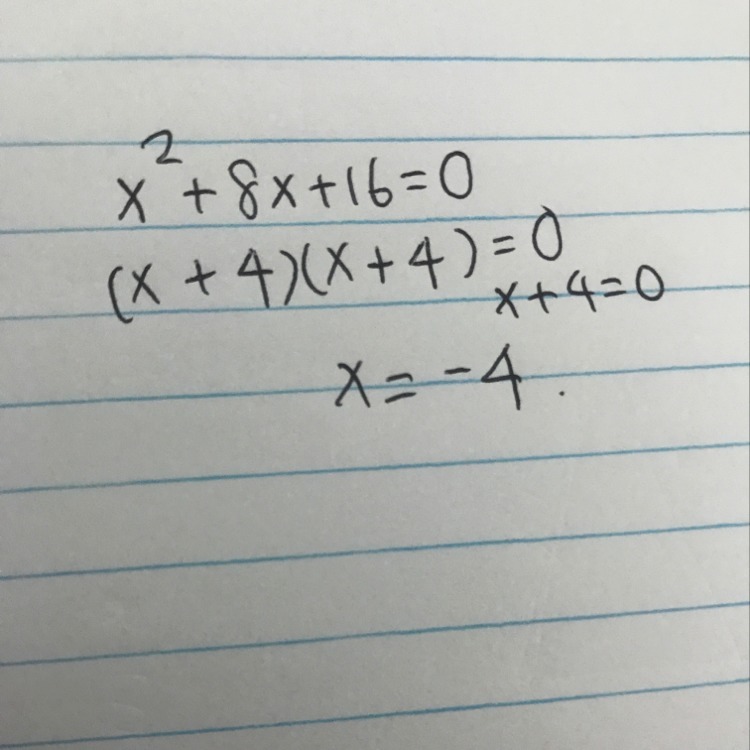 x² + 8x + 16 = 0
(x + 4)(x + 4) = 0
x + 4 = 0
x = -4.